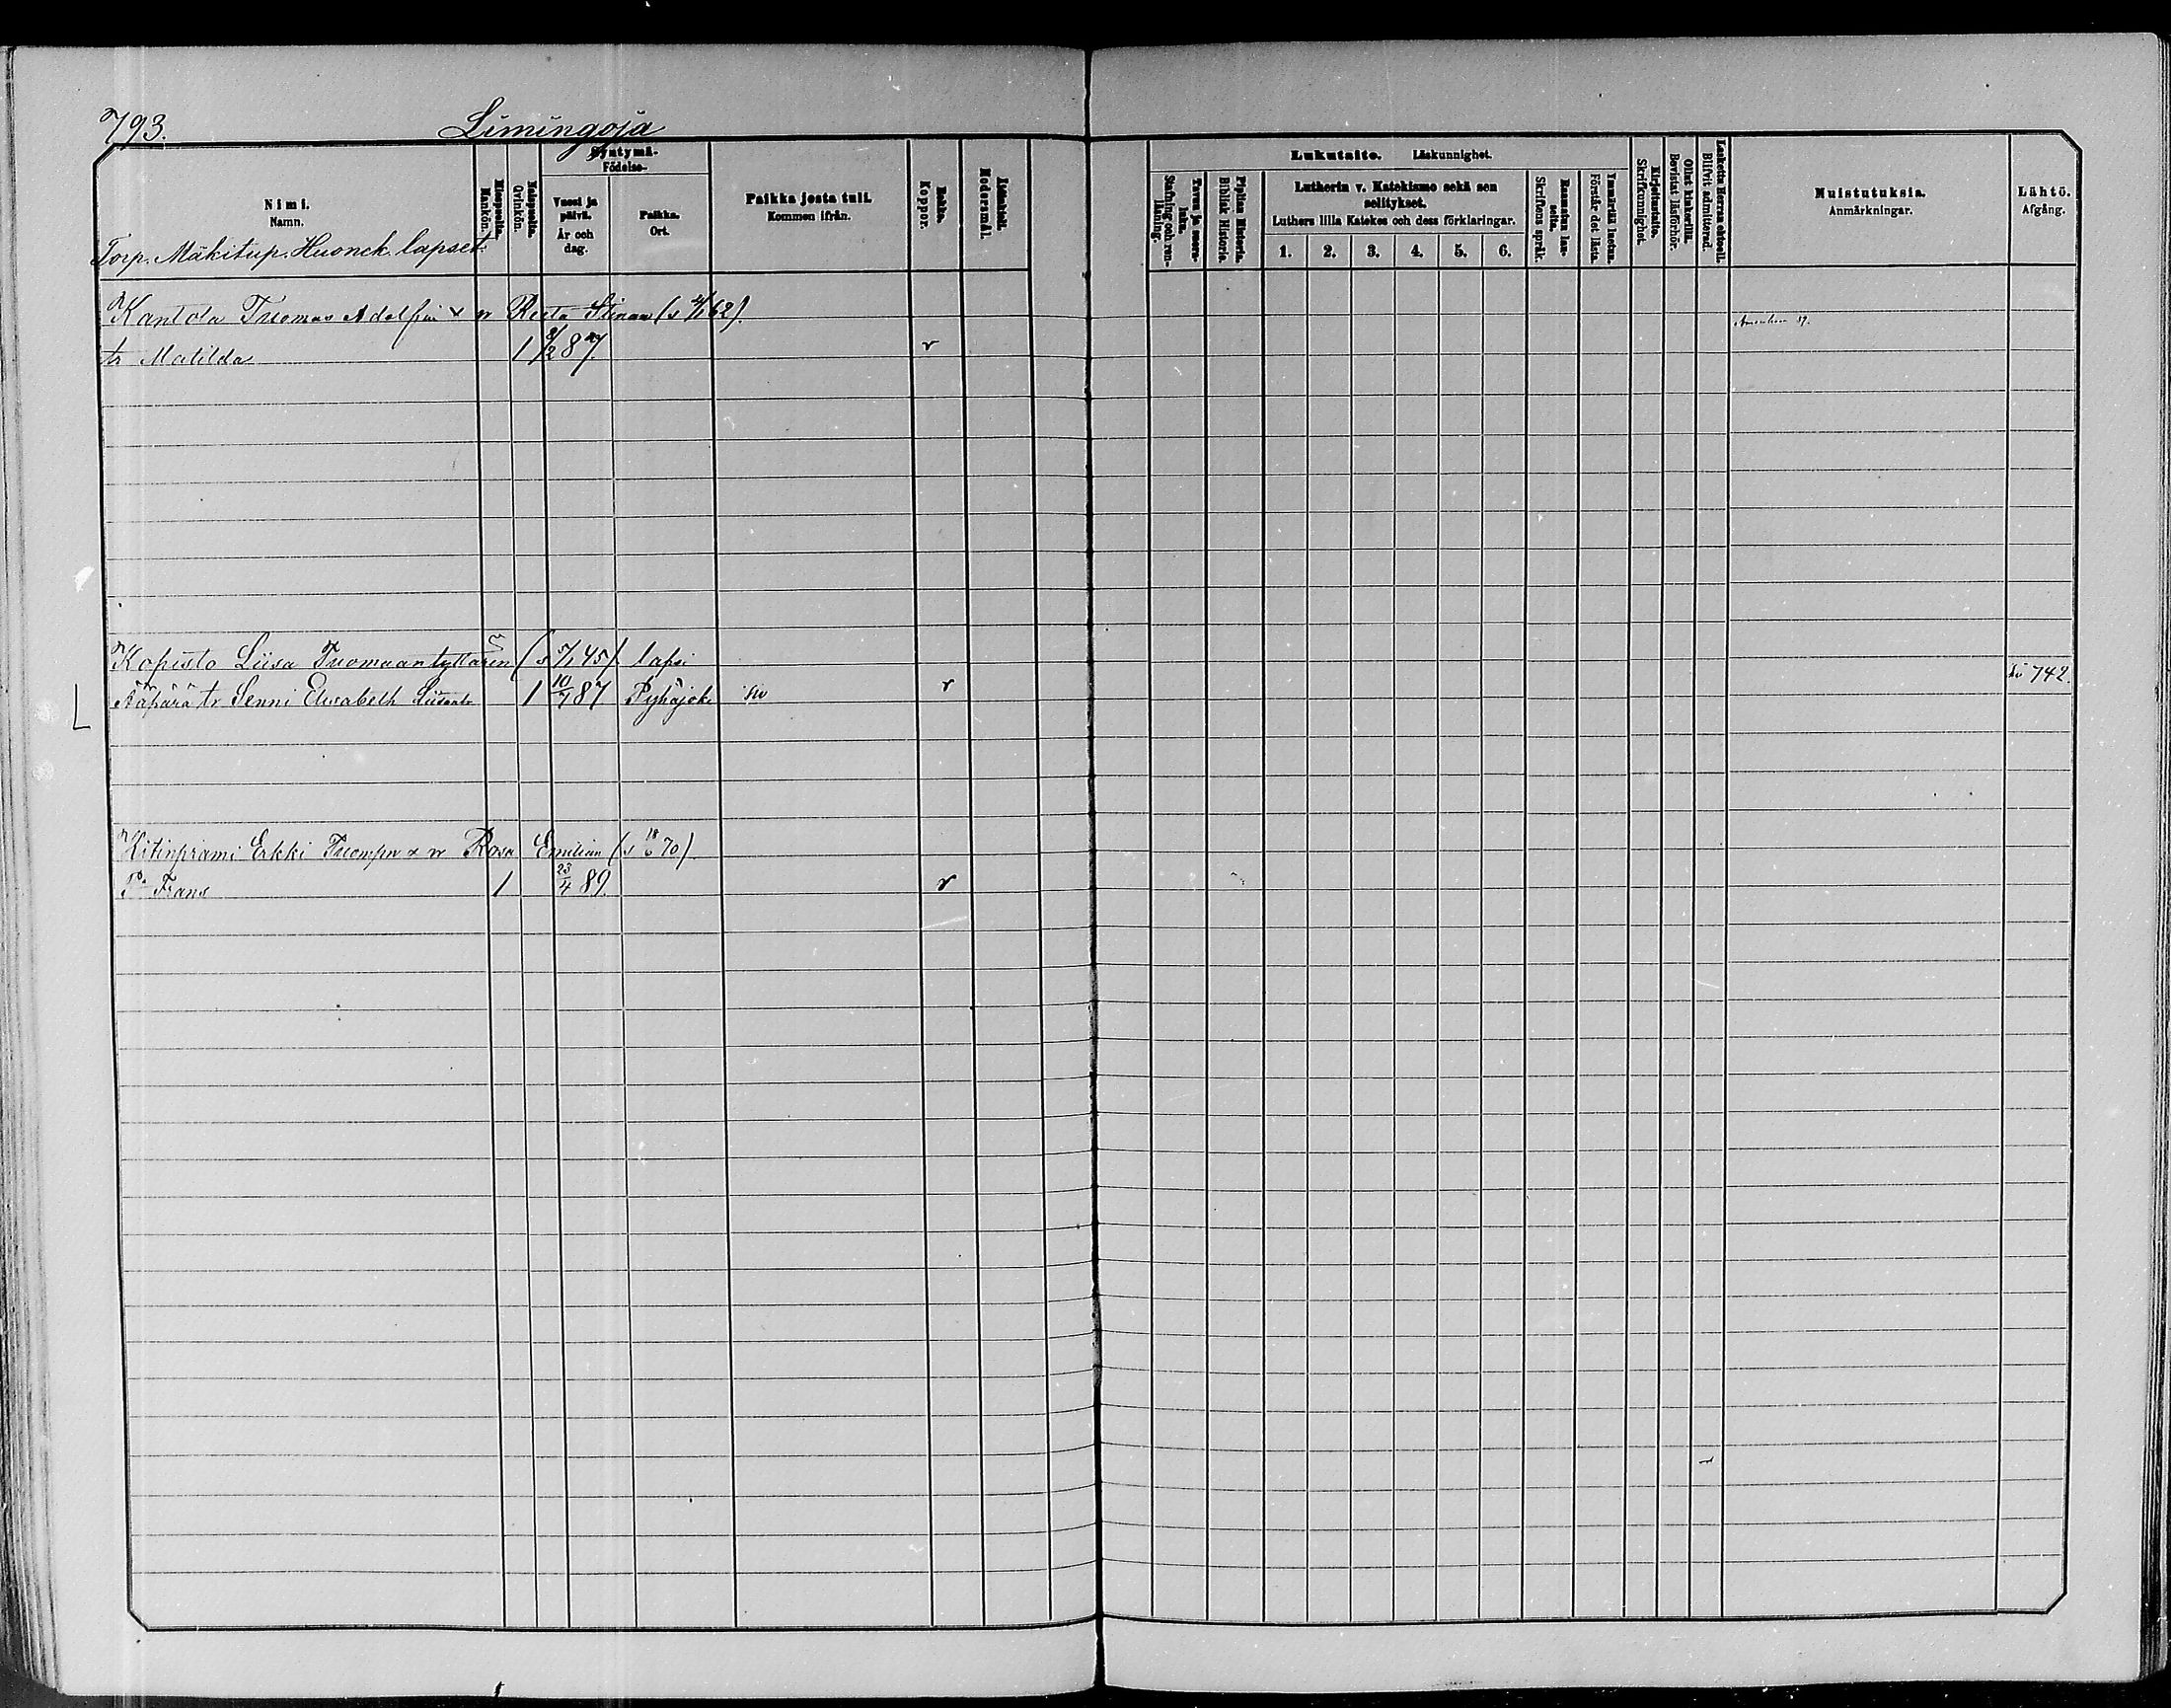 793. Limingoja
Syntymä-
Födelse-
Nimi.
Namn.
Miespuolia.
Mankön.
Vaispuolia.
Qvinkön.
Vuosi ja päivä.
År och dag.
Paikka.
Ort.
Paikka josta tuli.
Kommen ifrån.
Rokko.
Koppor.
Äidinkieli.
Modersmål.
Lukutaito. Läskunnighet.
Tavuu ja suora-luku.
Stafning och ren-läsning.
Piplian Historia.
Biblisk Historia.
Lutherin v. Katekismo sekä sen selitykset.
Luthers lilla Katekes och dess förklaringar.
1. 2. 3. 4. 5. 6.
Raamatun lau-seita.
Skriftens språk.
Ymmärtää luetun.
Förstår det lästa.
Kirjoitustaito.
Skrifkunnighet.
Ollut kinkerillä.
Bevistat läsförhör.
Laskettu Herran ehtoolli-
Blifvit admitterad.
Muistutuksia.
Anmärkningar.
Lähtö.
Afgång.
Torp. Mäkitup. Huonek. lapset.
Kantola Tuomas Adolfin x w Reeta Stinan (s 4/1 62).
tr Matilda 1 /2 87 v
Kopisto Liisa Tuomaantyttären (s 5/1 45) lapsi
Ääpärä tr Senni Elisabeth 1 10/7 87 Pyhäjoki v 742.
Kitinprami Erkki Tuompn x w Rosa Emilian (s 18/6 70).
Po. Frans 1 23/4 89. v